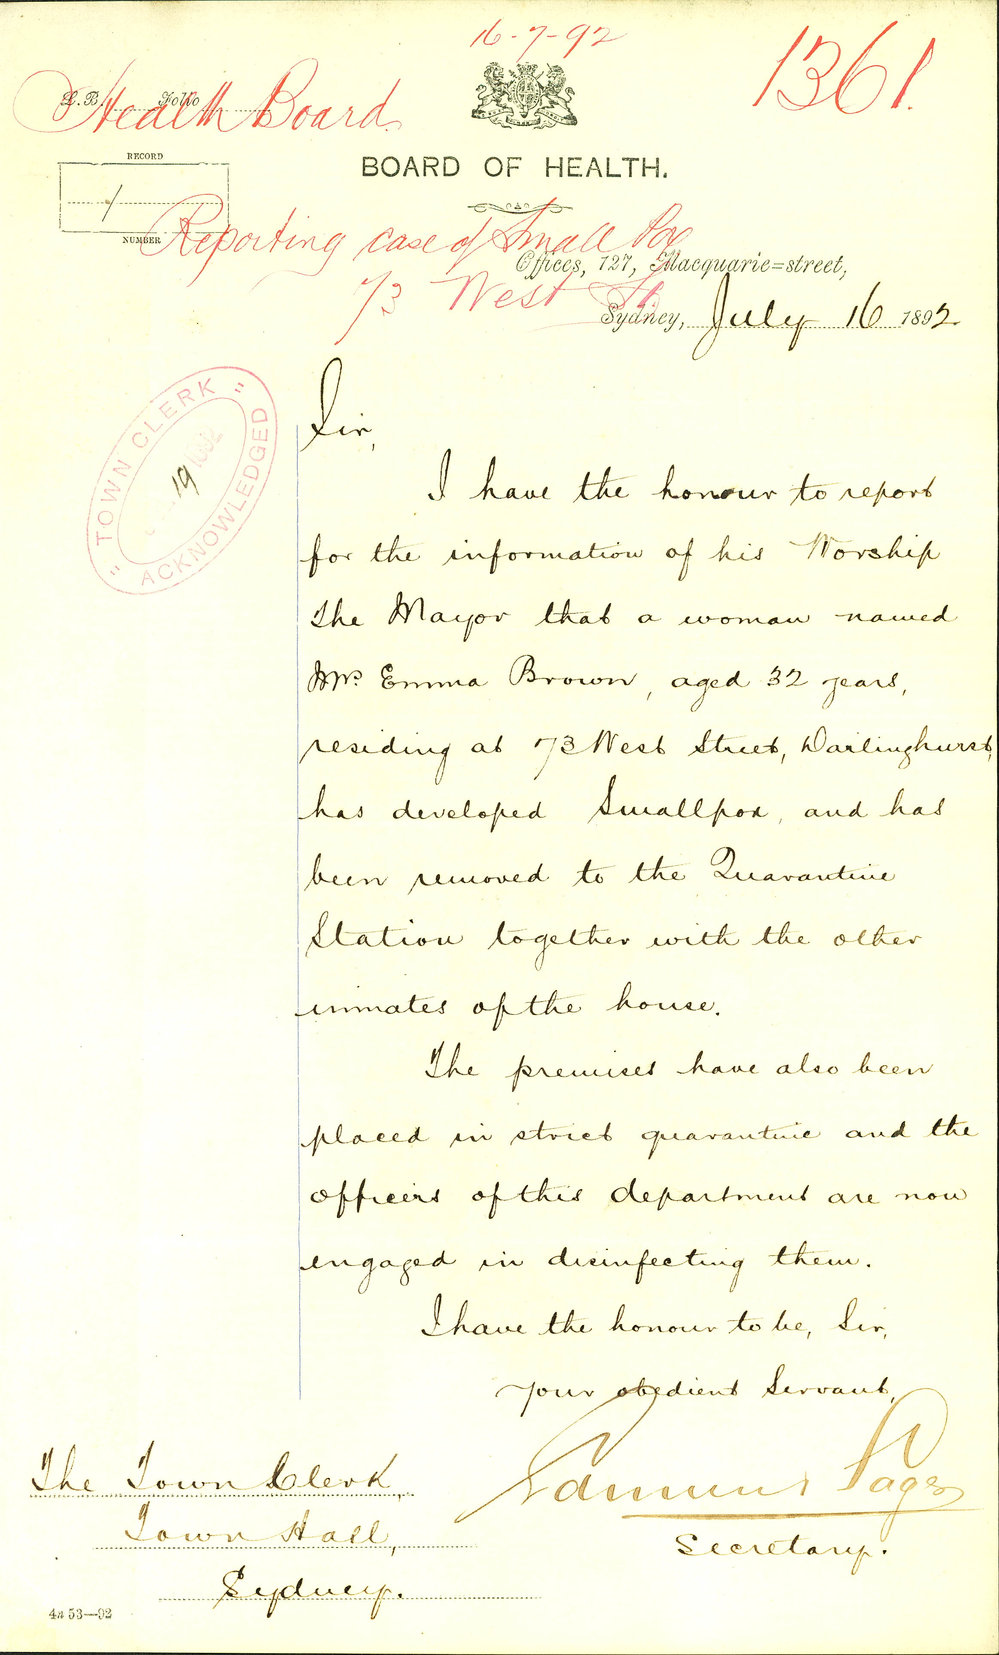 16-7-92
1361.
L.B. Folio
Health Board.
RECORD
1
NUMBER
BOARD OF HEALTH.
Reporting case of Small Pox
73 West St
Offices, 127, Macquarie=street,
Sydney, July 16 1892
"TOWN CLERK"
19
ACKNOWLEDGED
Sir,
I have the honour to report
for the information of his Worship
The Mayor that a woman named
Mrs Emma Brown, aged 32 years,
residing at 73 West Street, Darlinghurst,
has developed Smallpox, and has
been removed to the Quarantine
Station together with the other
inmates of the house.
The premises have also been
placed in strict quarantine and the
officers of this department are now
engaged in disinfecting them.
I have the honour to be, Sir,
Your obedient Servant,
Edmund Sager
Secretary.
The Town Clerk,
Town Hall,
Sydney.
4a 53—92